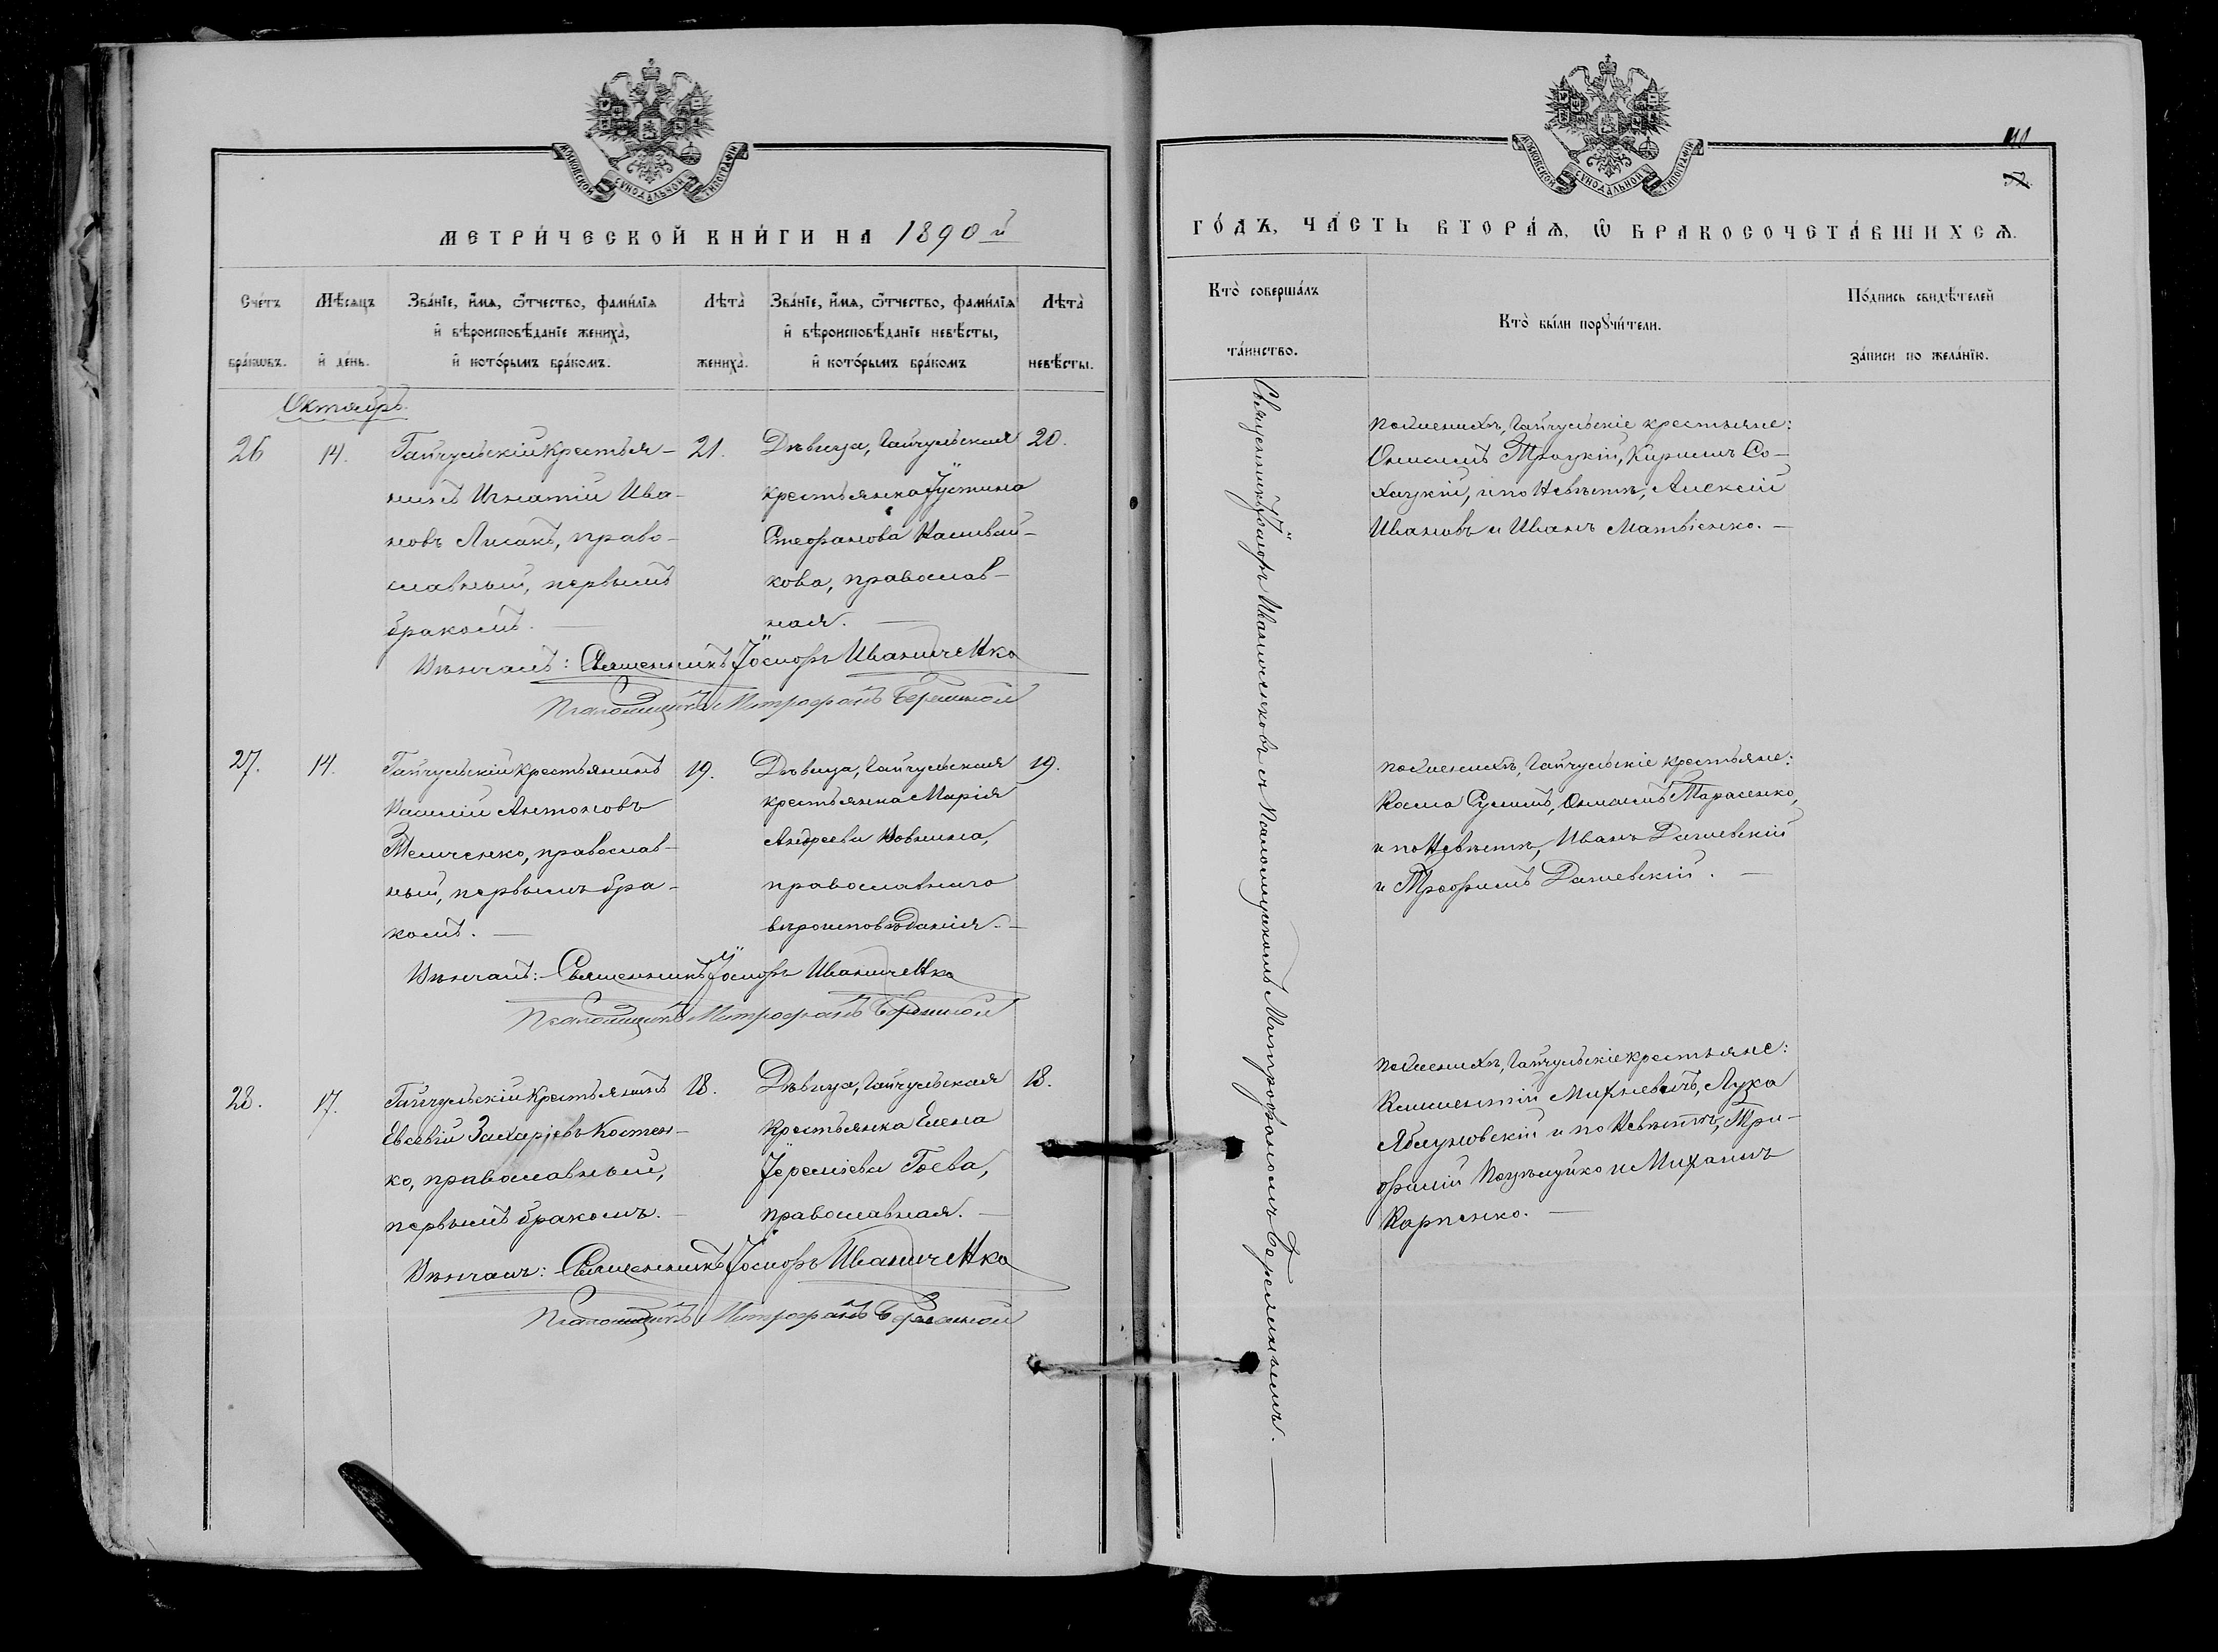 МОСКОВСКОЙ СѴНОДАЛЬНОЙ ТИПОГРАФІИ
МЕТРИ́ЧЕСКОЙ КНИ́ГИ НА 1890 й
Сче́тъ бра́кѡвъ.
Мѣ́сяцъ и҆ де́нь.
Зва́нїе, и҆́мѧ, ѻ҆́тчество, фамѝлїѧ
и҆ вѣроисповѣ́данїе жениха̀,
и҆ кото́рымъ бра́комъ.
Лѣта̀ жениха̀.
Зва́нїе, и҆́мѧ, ѻ҆́тчество, фамѝлїѧ
и҆ вѣроисповѣ́данїе невѣ́сты,
и҆ кото́рымъ бра́комъ
Лѣта̀ невѣ́сты.
Октябрь.
26
14.
Гайчульскій крестья-
нинъ Игнатій Ива-
новъ Лисакъ, право-
славный, первымъ
бракомъ. —
21.
Дѣвица, Гайчульская
крестьянка Іустина
Стефанова Наливай-
кова, православ-
ная. —
20.
Вѣнчалъ: Священникъ Іосифъ Иваниченко
Псаломщикъ Митрофанъ
27.
14.
Гайчульскій крестьянинъ
Василій Антоновъ
Темченко, православ-
ный, первымъ бра-
комъ. —
19.
Дѣвица, Гайчульская
крестьянка Марія
Андреева Вовкина,
православнаго
вѣроисповѣданія. —
19.
Вѣнчалъ: Священникъ Іосифъ Иваниченко
Псаломщикъ Митрофанъ
28.
17.
Гайчульскій крестьянинъ
Евсевій Захаріевъ Костен-
ко, православный,
первымъ бракомъ. —
18.
Дѣвица, Гайчульская
крестьянка Елена
Іереміева Гоева,
православная. —
18.
Вѣнчалъ: Священникъ Іосифъ Иваниченко
Псаломщикъ Митрофанъ
МОСКОВСКОЙ СѴНОДАЛЬНОЙ ТИПОГРАФІИ
ГО́ДЪ, ЧА́СТЬ ВТОРА́Ѧ, Ѡ҆ БРАКОСОЧЕТА́ВШИХСѦ.
Кто̀ соверша́лъ
та́инство.
Кто̀ бы́ли порꙋчи́тели.
По́дпись свидѣ́телей
за́писи по жела́нїю.
Священникъ Іосифъ Иваниченковъ съ Псаломщикомъ Митрофаномъ
По женихѣ, Гайчульскіе крестьяне:
Онисимъ Троцкій, Кириллъ Со-
хацкій, и по Невѣстѣ, Алексій
Ивановъ и Иванъ Матвіенко. —
По женихѣ, Гайчульскіе крестьяне:
Косма Сулимъ, Онисимъ Тарасенко,
и по Невѣстѣ, Иванъ Дашевскій
и Трофимъ Дашевскій. —
По женихѣ, Гайчульскіе крестьяне:
Климентій Михневичъ, Лука
Яблуновскій и по Невѣстѣ, Три-
филій и Михаилъ
Карпенко. —